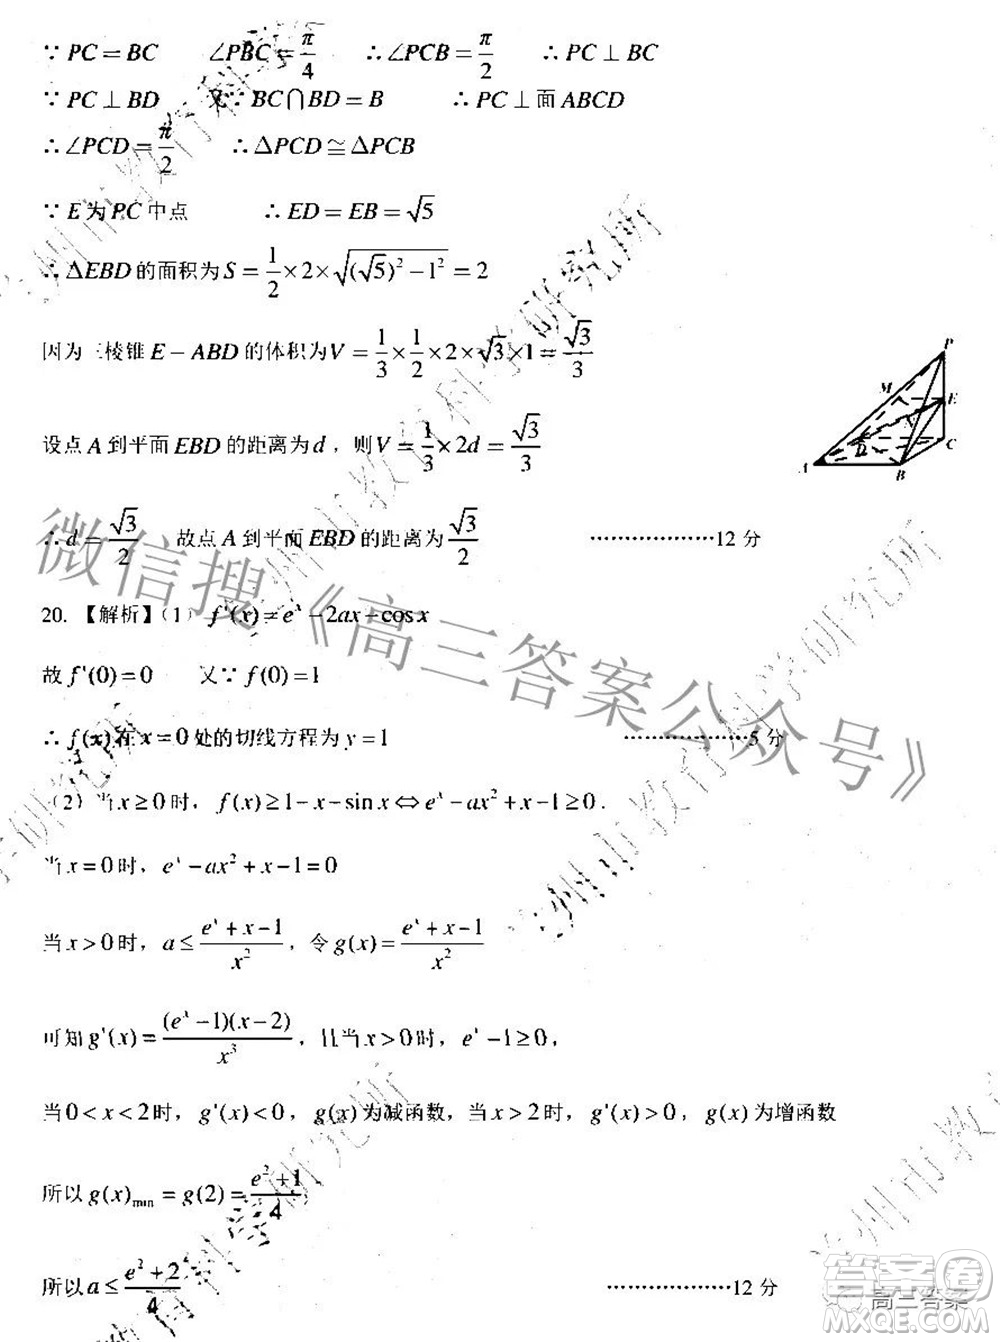 ∵ PC = BC  ∠PBC = π/4  ∴ ∠PCB = π/2  ∴ PC ⊥ BC
∵ PC ⊥ BD  又∵ BC∩BD = B  ∴ PC ⊥ 面 ABCD
∴ ∠PCD = π/2  ∴ △PCD ≅ △PCB
∵ E 为 PC 中点  ∴ ED = EB = √5
∴ △EBD 的面积为 S = 1/2 × 2 × √((√5)² − 1²) = 2
因为三棱锥 E − ABD 的体积为 V = 1/3 × 1/2 × 2 × √3 × 1 = √3/3
设点 A 到平面 EBD 的距离为 d，则 V = 1/3 × 2d = √3/3
P
M
E
D
C
A
B
∴ d = √3/2  故点 A 到平面 EBD 的距离为 √3/2 …………………12 分
20. 【解析】（1） f'(x) = e^x − 2ax − cos x
故 f'(0) = 0  又∵ f(0) = 1
∴ f(x) 在 x = 0 处的切线方程为 y = 1 …………………5 分
（2）当 x ≥ 0 时， f(x) ≥ 1 − x − sin x ⇔ e^x − ax² + x − 1 ≥ 0 .
当 x = 0 时， e^x − ax² + x − 1 = 0
当 x > 0 时， a ≤ (e^x + x − 1)/x² ，令 g(x) = (e^x + x − 1)/x²
可知 g'(x) = (e^x − 1)(x − 2)/x³ ，且当 x > 0 时， e^x − 1 ≥ 0 ，
当 0 < x < 2 时， g'(x) < 0 ， g(x) 为减函数，当 x > 2 时， g'(x) > 0 ， g(x) 为增函数
所以 g(x)min = g(2) = (e² + 1)/4
所以 a ≤ (e² + 2)/4 …………………12 分
微信搜《高三答案公众号》
高三答案
答案圈
MXQE.COM